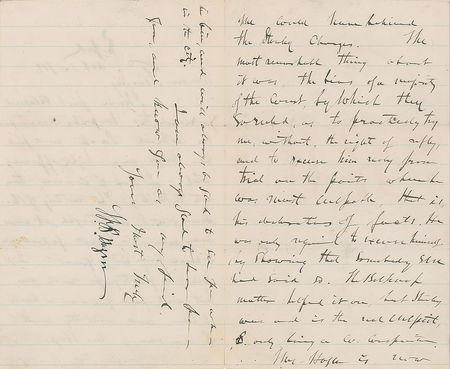 We could have behind
the Stanley Charges. The
most remarkable thing about
it was, the bias of a majority
of the Court, by which they
so ruled, as to practically try
me, without, the right of reply,
and to excuse him only from
trial on the points where he
was most culpable, that is,
his declarations of facts. He
was only required to excuse himself,
by showing that somebody else
had said so. The Belknap
matter helped it on but Stanley
was and is the real culprit,
B. only being a Co. Conspirator.
Mrs Hazen is now
and will always be glad to see you when
in the city.
I am always glad to hear from
you, and know you as my friend.
Yours Most Truly
W B Hazen